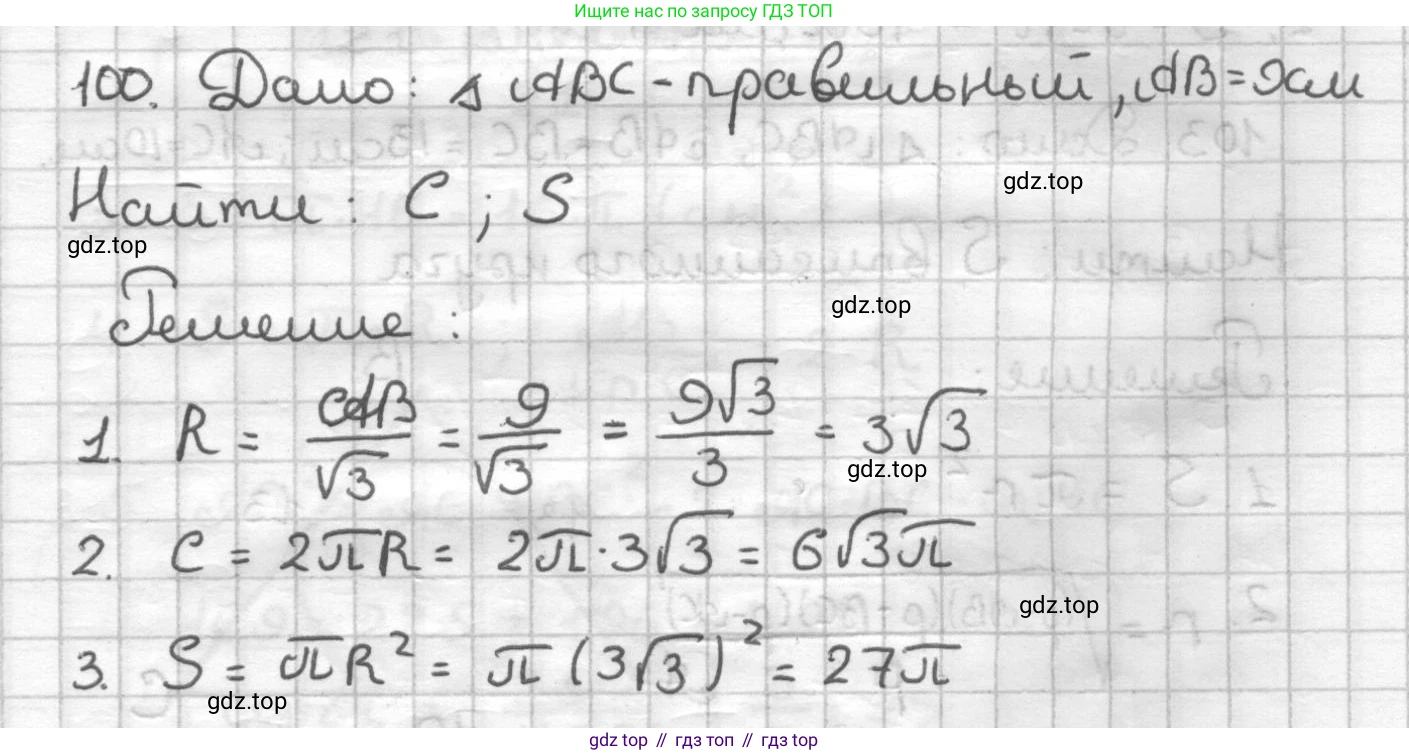 Ищите нас по запросу ГДЗ ТОП
100. Дано: Δ ABC - правильный, AB = 9см
gdz.top
Найти: C ; S
gdz.top
Решение:
gdz.top
1. R = AB/√3 = 9/√3 = 9√3/3 = 3√3
gdz.top
2. C = 2πR = 2π·3√3 = 6√3π
gdz.top
3. S = πR² = π(3√3)² = 27π
gdz.top
gdz top // гдз топ // гдз top